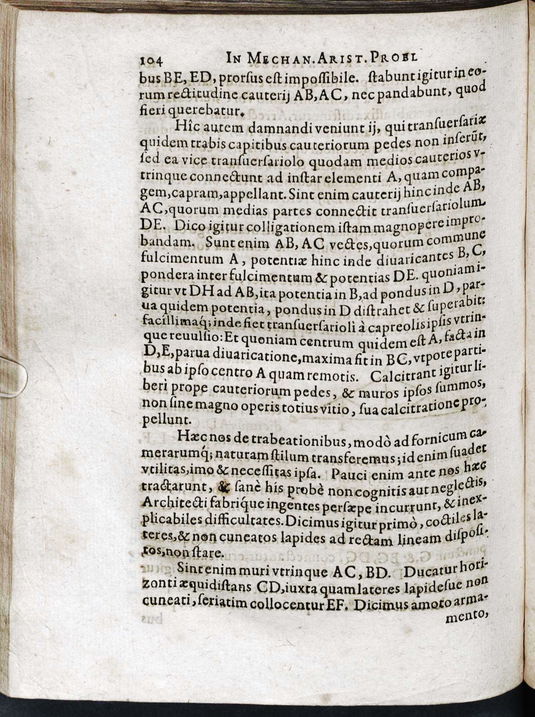 104 IN MECHAN. ARIST. PROBL
bus BE, ED, prorsus est impossibile. stabunt igitur in eo-
rum rectitudine cauterij AB, AC, nec pandabunt, quod
fieri querebatur.
Hîc autem damnandi veniunt ij, qui transuersariæ
quidem trabis capitibus cauteriorum pedes non inserũt,
sed ea vice transuersariolo quodam medios cauterios v-
trinque connectunt ad instar elementi A, quam compa-
gem, capram, appellant. Sint enim cauterij hinc inde AB,
AC, quorum medias partes connectit transuersariolum
DE. Dico igitur colligationem istam magnopere impro-
bandam. Sunt enim AB, AC vectes, quorum commune
fulcimentum A, potentiæ hinc inde diuaricantes B, C,
pondera inter fulcimentum & potentias DE. quoniam i-
gitur vt DH ad AB, ita potentia in B, ad pondus in D, par-
ua quidem potentia, pondus in D distrahet & superabit;
facillimaq; inde fiet transuersarioli à capreolis ipsis vtrin-
que reuulsio: Et quoniam centrum quidem est A, facta in
D, E, parua diuaricatione, maxima fit in BC, vtpote parti-
bus ab ipso centro A quam remotis. Calcitrant igitur li-
beri prope cauteriorum pedes, & muros ipsos summos,
non sine magno operis totius vitio, sua calcitratione pro-
pellunt.
Hæc nos de trabeationibus, modò ad fornicum ca-
merarumq; naturam stilum transferemus; id enim suadet
vtilitas, imo & necessitas ipsa. Pauci enim ante nos hæc
tractarunt, & sanè his probè non cognitis aut neglectis,
Architecti fabrique ingentes persæpe incurrunt, & inex-
plicabiles difficultates. Dicimus igitur primò, coctiles la-
teres, & non cuneatos lapides ad rectam lineam disposi-
tos, non stare.
Sint enim muri vtrinque AC, BD. Ducatur hori-
zonti æquidistans CD, iuxta quam lateres lapidesue non
cuneati, seriatim collocentur EF. Dicimus amoto arma-
mento,